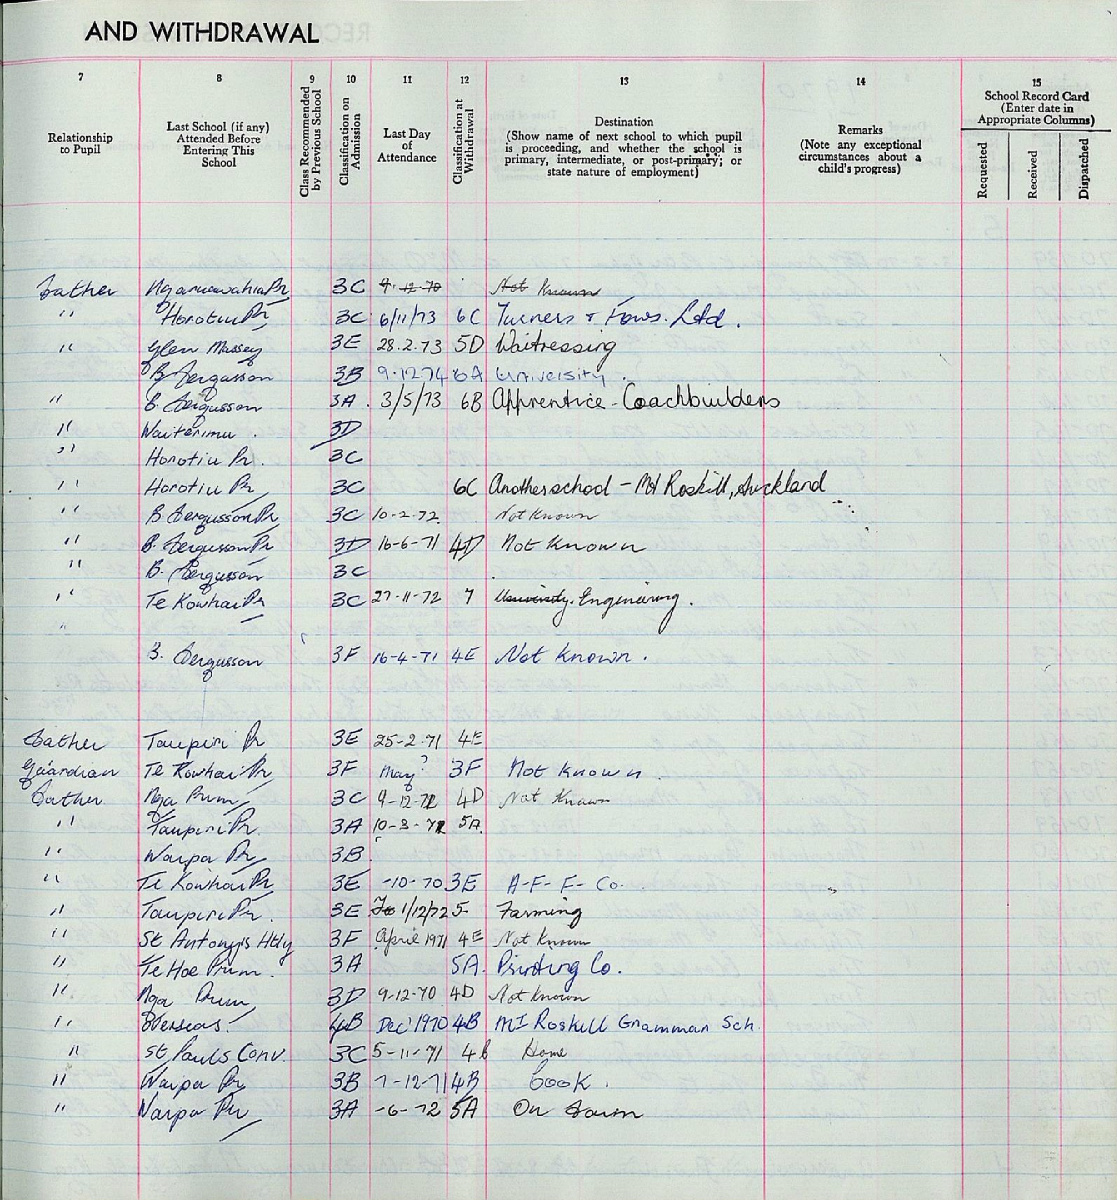 AND WITHDRAWAL
7 8 9 10 11 12 13 14 15
Relationship to Pupil
Last School (if any) Attended Before Entering This School
Class Recommended by Previous School
Classification on Admission
Last Day of Attendance
Classification at Withdrawal
Destination (Show name of next school to which pupil is proceeding, and whether the school is primary, intermediate, or post-primary; or state nature of employment)
Remarks (Note any exceptional circumstances about a child's progress)
School Record Card (Enter date in Appropriate Columns)
Requested Received Dispatched
Father Ngaruawahia Pr 3C 9-12-70 Not Known
" Horotiu Pr 3C 6/11/73 6C Turners & Fows. Ltd.
" Glen Massey 3E 28.2.73 5D Waitressing
B Fergusson 3B 9-1274 6A University.
" B. Fergusson 3A. 3/5/73 6B Apprentice - Coachbuilders
" Waiterimu. 3D
" Horotiu Pr. 3C
" Horotiu Pr 3C 6C Another school - Mt Roskill, Auckland
" B Fergusson Pr 3C 10-2-72. Not Known
" B. Fergusson Pr 3D 16-6-71 4D Not Known
" B. Fergusson 3C
" Te Kowhai Pr 3C 27-11-72 7 University. Enginering.
"
B. Fergusson 3F 16-4-71 4E Not Known.
Father Taupiri Pr 3E 25-2-71 4E
Guardian Te Kowhai Pr 3F May? 3F Not Known.
Father Nga Prim 3C 9-12-71 4D Not Known
" Taupiri Pr. 3A 10-3-72 5A.
" Waipa Pr 3B.
" Te Kowhai Pr 3E -10-70 3E A-F-F-Co.
" Taupiri Pr. 3E 1/12/72 5- Farming
" St Antonys Htly 3F April 1971 4E Not Known
" Te Hoe Prim. 3A 5A. Printing Co.
" Nga Prim 3D 9-12-70 4D Not Known
" Overseas. 4B Dec' 1970 4B Mt Roskill Gramman Sch.
" St Pauls Conv. 3C 5-11-71 4 Home
" Waipa Pr 3B 7-12-71 4B Cook.
" Waipa Pr 3A -6-72 5A On Farm